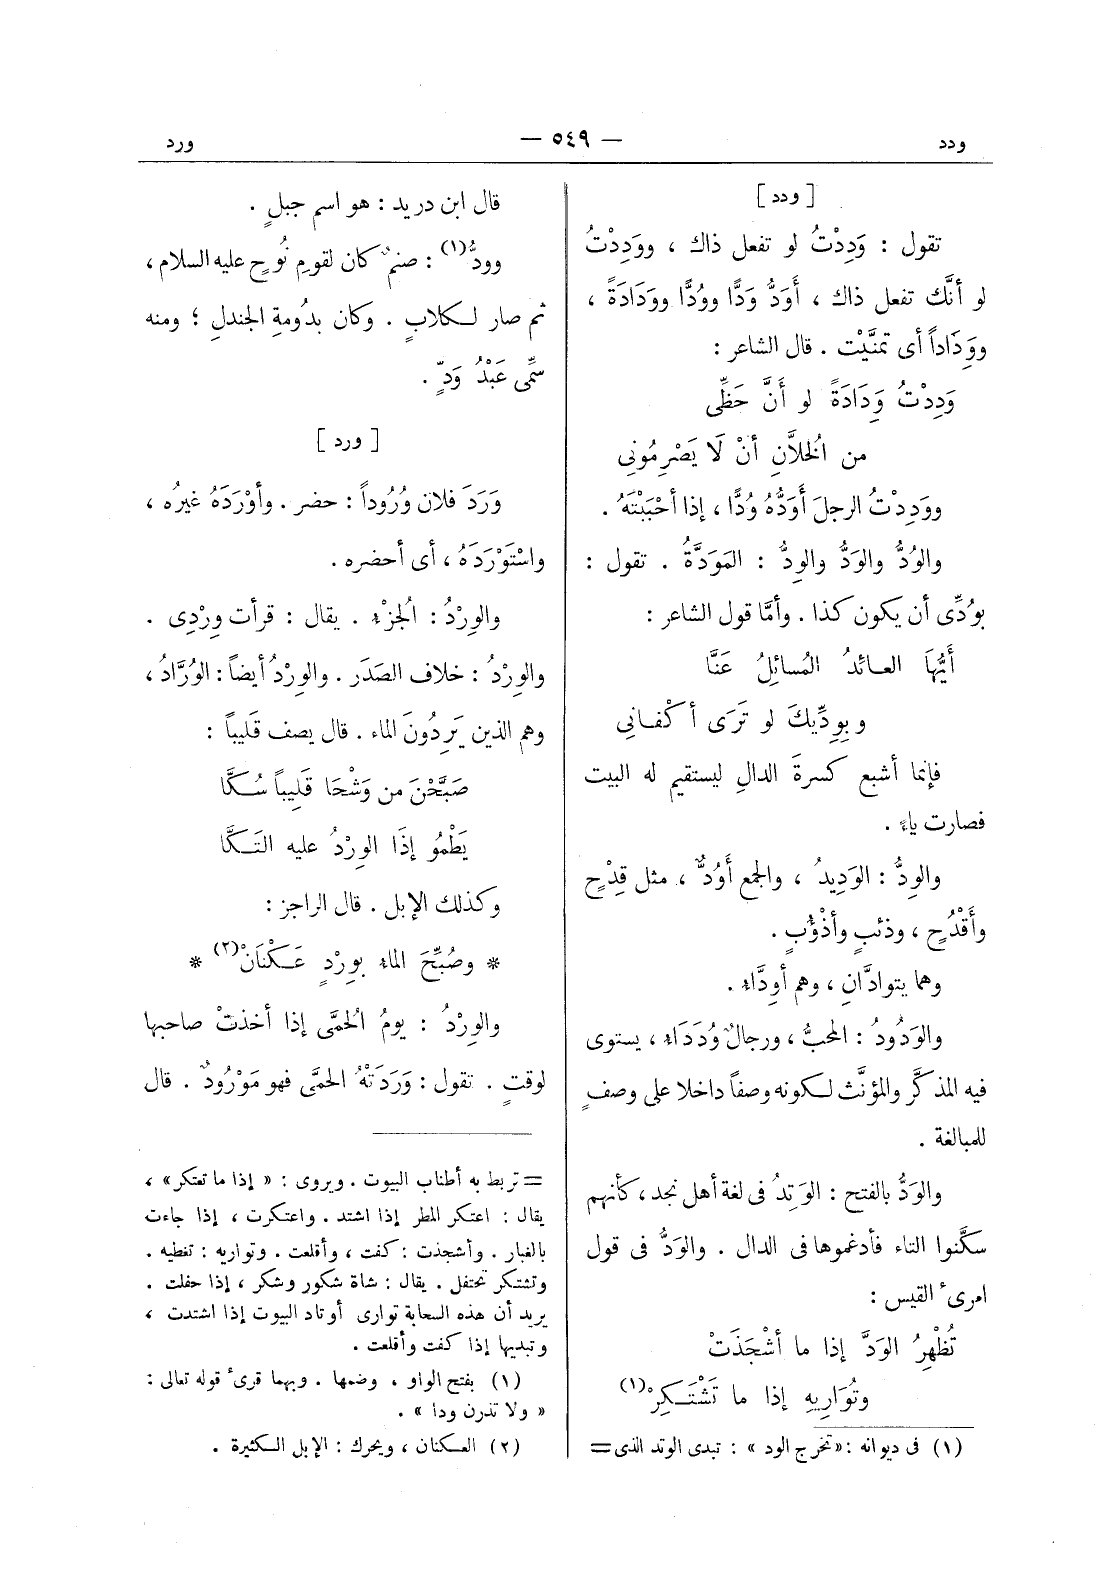 ودد — ٥٤٩ — ورد
[ ودد ]
تقول : وَدِدْتُ لو تفعل ذاك ، ووَدِدْتُ
لو أنَّك تفعل ذاك ، أَوَدُّ وَدًّا ووُدًّا ووَدَادَةً ،
ووَدَاداً أى تمنَّيْت . قال الشاعر :
وَدِدْتُ وِدَادَةً لو أَنَّ حَظِّى
من الُخلاَّنِ أنْ لَا يَصْرِمُونِى
ووَدِدْتُ الرجلَ أَوَدُّهُ وُدًّا ، إذا أحْبَبْتَهُ .
والوُدُّ والوَدُّ والوِدُّ : المَوَدَّةُ . تقول :
بوُدِّى أن يكون كذا . وأمَّا قول الشاعر :
أَيُّهَا العـائدُ المُسائلُ عَنَّا
وبِوِدِّيكَ لو تَرَى أكْفـانِى
فإنما أشبع كسرةَ الدالِ ليستقيم له البيت
فصارت ياءً .
والوِدُّ : الوَدِيدُ ، والجمع أَوُدٌّ ، مثل قِدْحٍ
وأَقْدُحٍ ، وذئبٍ وأذْؤُبٍ .
وهما يتوادَّانِ ، وهم أوِدَّاء .
والوَدُودُ : المحبُّ ، ورجالٌ وُدَدَاء ، يستوى
فيه المذكَّر والمؤنَّث لـكونه وصفاً داخلا على وصفٍ
للمبالغة .
والوَدُّ بالفتح : الوَتِدُ فى لغة أهل نجد ، كأنهم
سكَّنوا التاء فأدغموها فى الدال . والوَدُّ فى قول
امرىء القيس :
تُظْهِرُ الوَدَّ إذا ما أشْجَذَتْ
وتُوَارِيهِ إذا ما تَشْتَـكِرْ(١)
(١) فى ديوانه : «تخرج الود » : تبدى الوتد الذى =
قال ابن دريد : هو اسم جبلٍ .
وودُّ(١) : صنمٌ كان لقومِ نُوحٍ عليه السلام ،
ثم صار لـكلابٍ . وكان بدُومةِ الجندلِ ؛ ومنه
سمِّى عَبْدُ وَدٍّ .
[ ورد ]
وَرَدَ فلان وُرُوداً : حضر . وأوْرَدَهُ غيرُه ،
واسْتَوْرَدَهُ ، أى أحضره .
والوِرْدُ : الُجزْء . يقال : قرأت وِرْدِى .
والوِرْدُ : خلاف الصَدَر . والوِرْدُ أيضاً : الوُرَّادُ ،
وهم الذين يَرِدُونَ الماء . قال يصف قَلِيباً :
صَبَّحْنَ من وَشْحَا قَلِيباً سُـكَّا
يَطْمُو إذَا الوِرْدُ عليه التَـكَّا
وكذلك الإبل . قال الراجز :
* وصُبِّحَ الماء بوِرْدٍ عَـكْنَانْ(٢) *
والوِرْدُ : يومُ الُحمَّى إذا أخذتْ صاحبها
لوقتٍ . تقول : وَرَدَتْهُ الحمَّى فهو مَوْرُودٌ . قال
= تربط به أطناب البيوت . ويروى : « إذا ما تعتكر » ،
يقال : اعتكر المطر إذا اشتد . واعتكرت ، إذا جاءت
بالغبار . وأشجذت : كفت ، وأقلعت . وتواريه : تغطيه .
وتشتكر تحتفل . يقال : شاة شكور وشكر ، إذا حفلت .
يريد أن هذه السحابة توارى أوتاد البيوت إذا اشتدت ،
وتبديها إذا كفت وأقلعت .
(١) بفتح الواو ، وضمها . وبهما قرىء قوله تعالى :
« ولا تذرن ودا » .
(٢) العـكنان ، ويحرك : الإبل الـكثيرة .